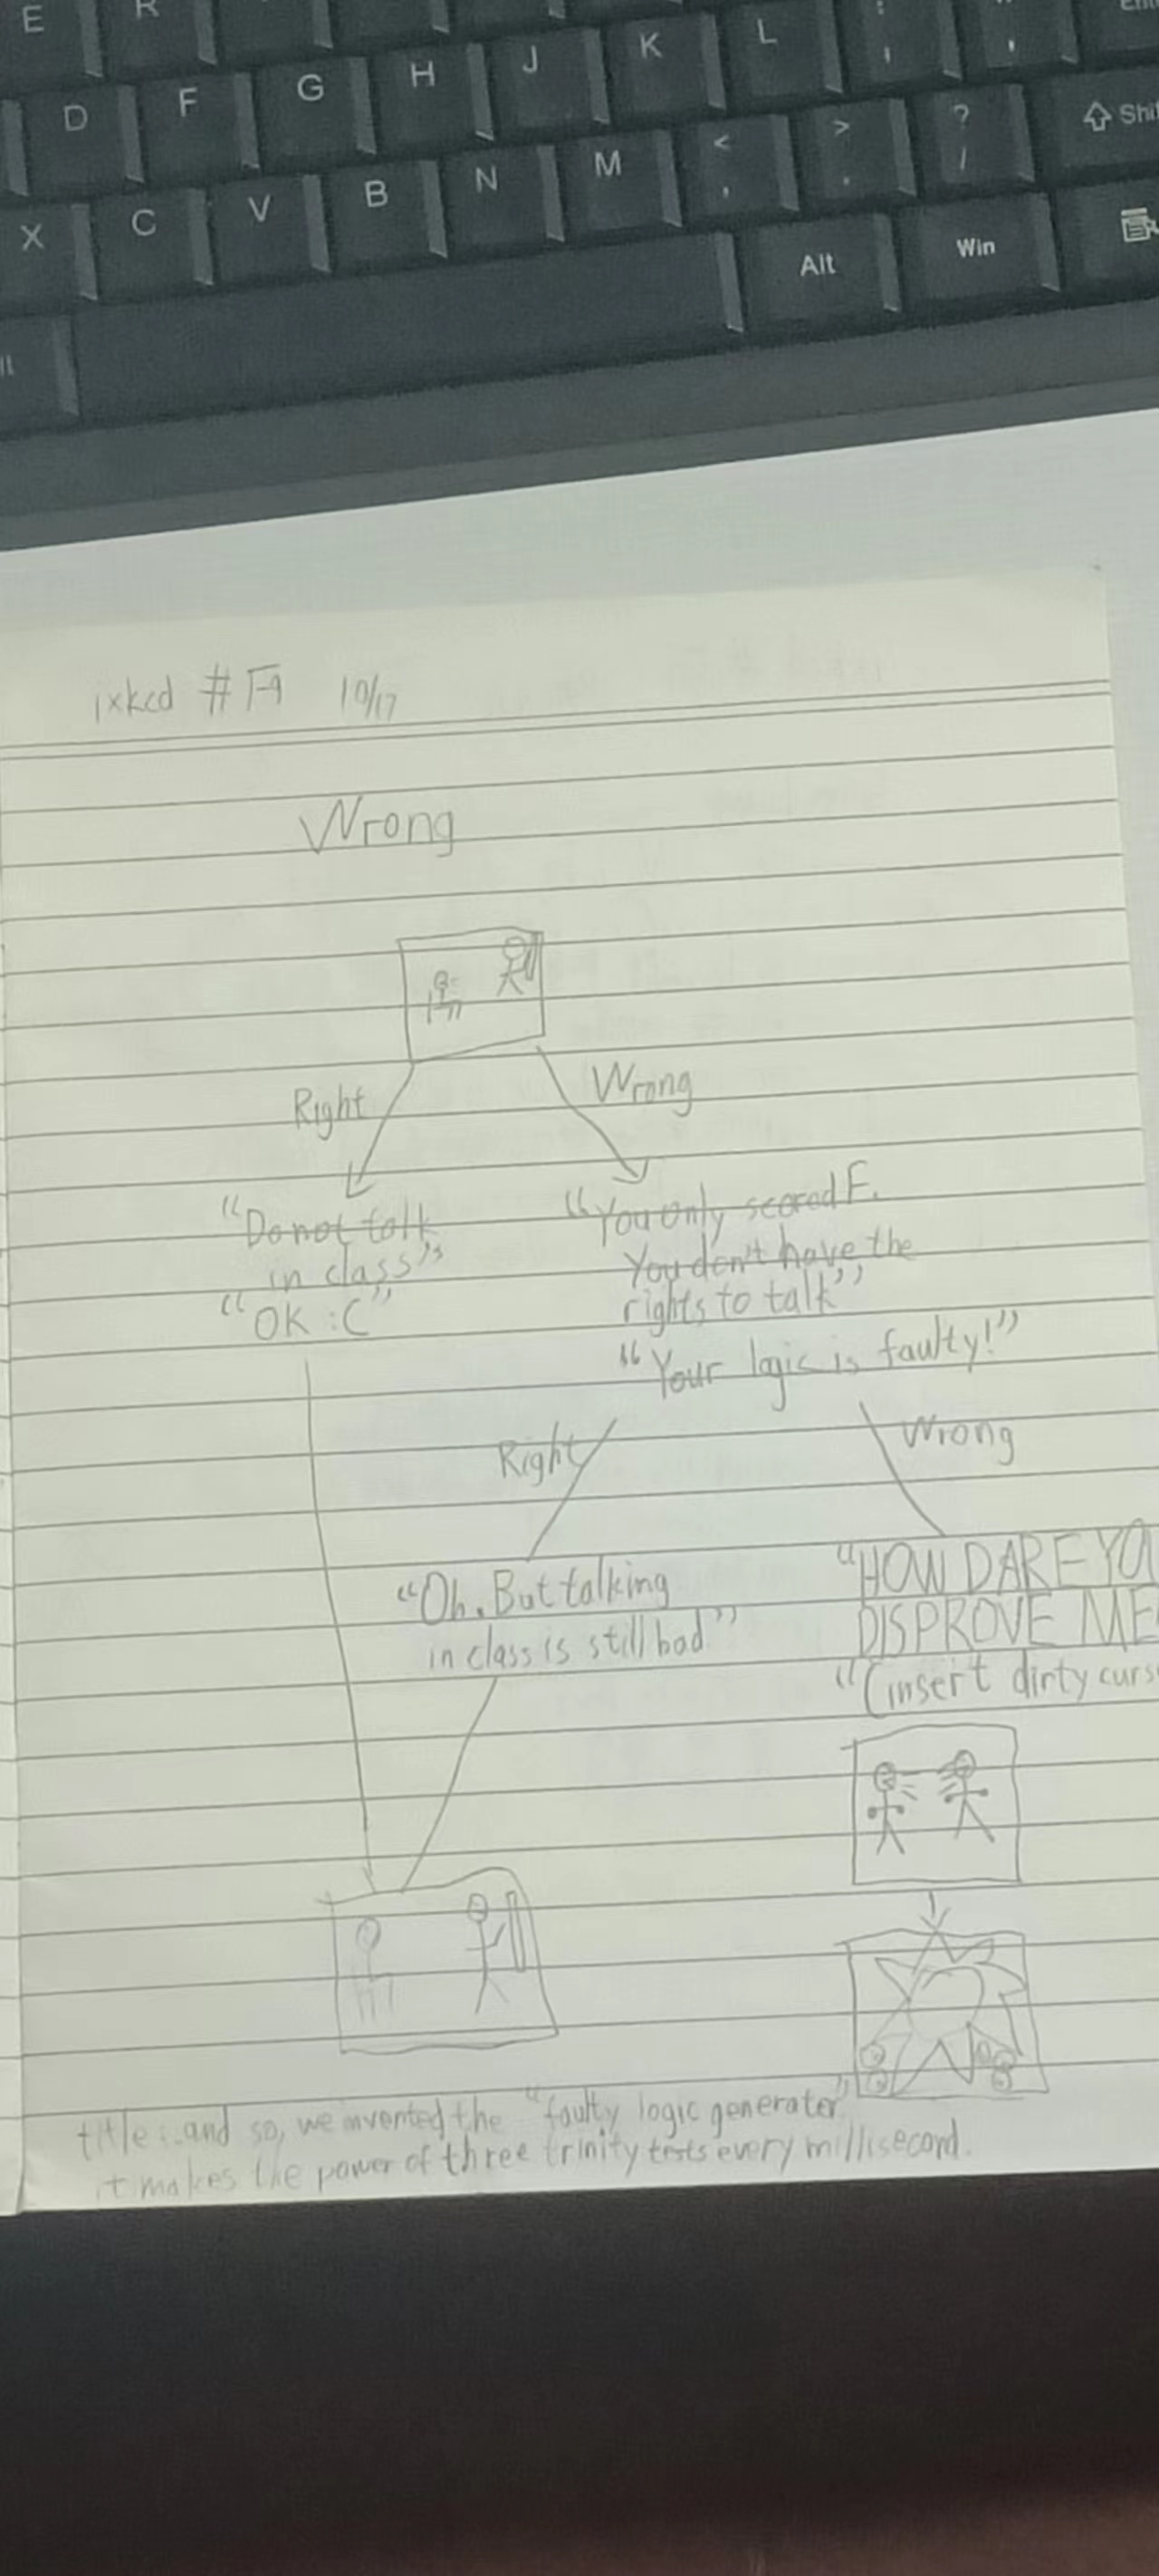 E R
D F G H J K L : ; " '
X C V B N M < , > . ? / Shi
Alt Win
ixkcd # 10/17
Wrong
Right
Wrong
"Do not talk
in class"
"OK :C"
"You only scored F.
You don't have the
rights to talk"
"Your logic is faulty!"
Right
Wrong
"Oh. But talking
in class is still bad"
"HOW DARE YO
DISPROVE ME
"(insert dirty curs
title: and so, we invented the "faulty logic generater"
it makes the power of three trinity tests every millisecond.